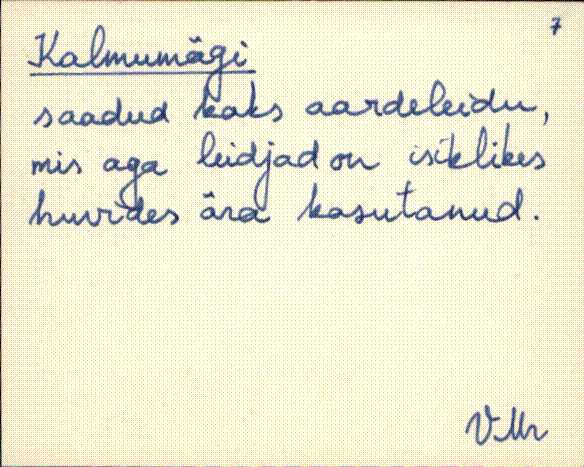 7
Kalmumägi
saadud kaks aardeleidu,
mis aga leidjad on isiklikes
huvides ära kasutanud.
V. Mr